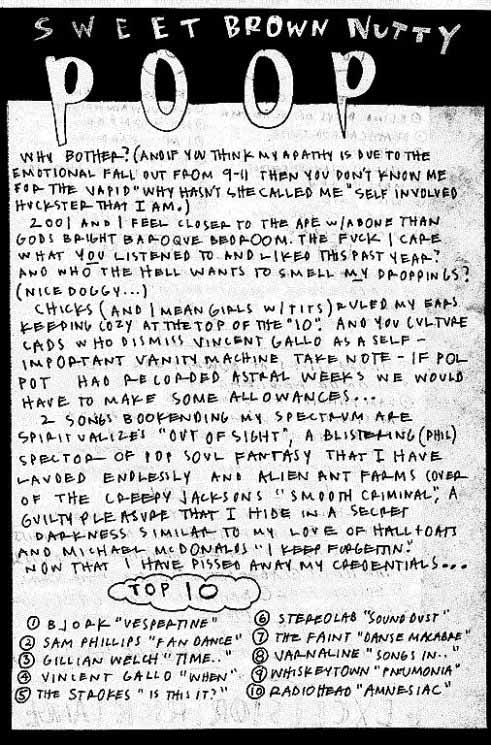 SWEET BROWN NUTTY
POOP
WHY BOTHER? (AND IF YOU THINK MY APATHY IS DUE TO THE
EMOTIONAL FALL OUT FROM 9-11 THEN YOU DON'T KNOW ME
FOR THE VAPID "WHY HASN'T SHE CALLED ME" SELF INVOLVED
HUCKSTER THAT I AM.)
2001 AND I FEEL CLOSER TO THE APE W/A BONE THAN
GODS BRIGHT BAROQUE BEDROOM. THE FUCK I CARE
WHAT YOU LISTENED TO AND LIKED THIS PAST YEAR?
AND WHO THE HELL WANTS TO SMELL MY DROPPINGS?
(NICE DOGGY...)
CHICKS (AND I MEAN GIRLS W/TITS) RULED MY EARS
KEEPING COZY AT THE TOP OF THE "10". AND YOU CULTURE
CADS WHO DISMISS VINCENT GALLO AS A SELF-
IMPORTANT VANITY MACHINE, TAKE NOTE - IF POL
POT HAD RECORDED ASTRAL WEEKS WE WOULD
HAVE TO MAKE SOME ALLOWANCES...
2 SONGS BOOKENDING MY SPECTRUM ARE
SPIRITUALIZED "OUT OF SIGHT", A BLISTERING (PHIL)
SPECTOR OF POP SOUL FANTASY THAT I HAVE
LAUDED ENDLESSLY AND ALIEN ANT FARMS COVER
OF THE CREEPY JACKSONS "SMOOTH CRIMINAL", A
GUILTY PLEASURE THAT I HIDE IN A SECRET
DARKNESS SIMILAR TO MY LOVE OF HALL + OATS
AND MICHAEL MCDONALDS "I KEEP FORGETTIN'.
NOW THAT I HAVE PISSED AWAY MY CREDENTIALS...
TOP 10
① BJORK "VESPERTINE"
② SAM PHILLIPS "FAN DANCE"
③ GILLIAN WELCH "TIME.."
④ VINCENT GALLO "WHEN"
⑤ THE STROKES "IS THIS IT?"
⑥ STEREOLAB "SOUND DUST"
⑦ THE FAINT "DANSE MACABRE"
⑧ VARNALINE "SONGS IN.."
⑨ WHISKEYTOWN "PNEUMONIA"
⑩ RADIOHEAD "AMNESIAC"